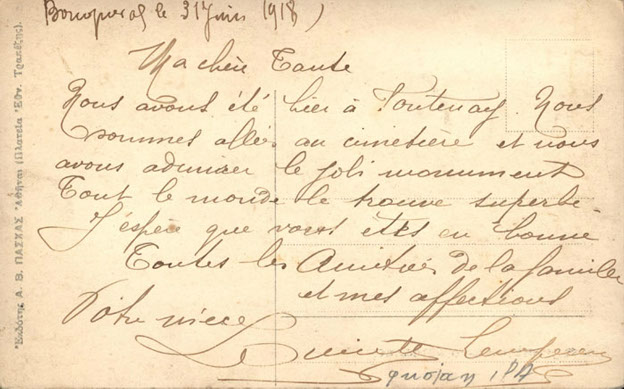 le 31 Juin 1918
Ma chère Tante
Nous avons été hier à Fontenay. Nous
sommes allés au cimetière et nous
avons admirer le joli monument
Tout le monde le trouve superbe.
J'espère que vous êtes en bonne
Toutes les Amitiés de la famille
et mes affections
Votre nièce
Ἐκδότης Α. Β. ΠΑΣΧΑΣ Ἀθῆναι (Πλατεῖα Ἐθν. Τραπέζης).